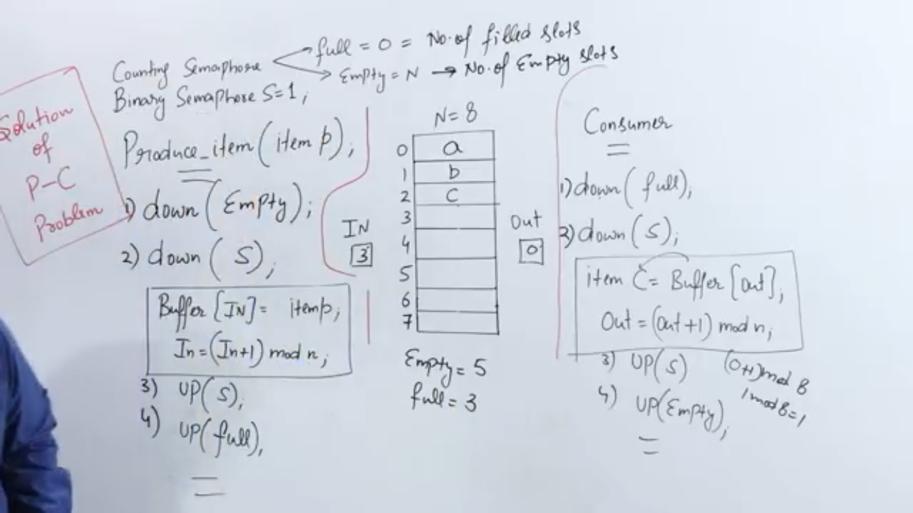 Solution
of
P-C
Problem
Counting Semaphore
full = 0 = No. of filled slots
Empty = N → No. of Empty slots
Binary Semaphore S=1;
Produce_item(item p);
1) down(Empty);
2) down(S);
Buffer[IN] = itemp;
In = (In+1) mod n;
3) UP(S);
4) UP(full);
IN
3
N = 8
0 a
1 b
2 C
3
4
5
6
7
Empty = 5
full = 3
Out
0
Consumer
1) down(full);
2) down(S);
item C = Buffer[Out];
Out = (Out+1) mod n;
3) UP(S)
4) UP(Empty);
(0+1) mod 8
1 mod 8 = 1